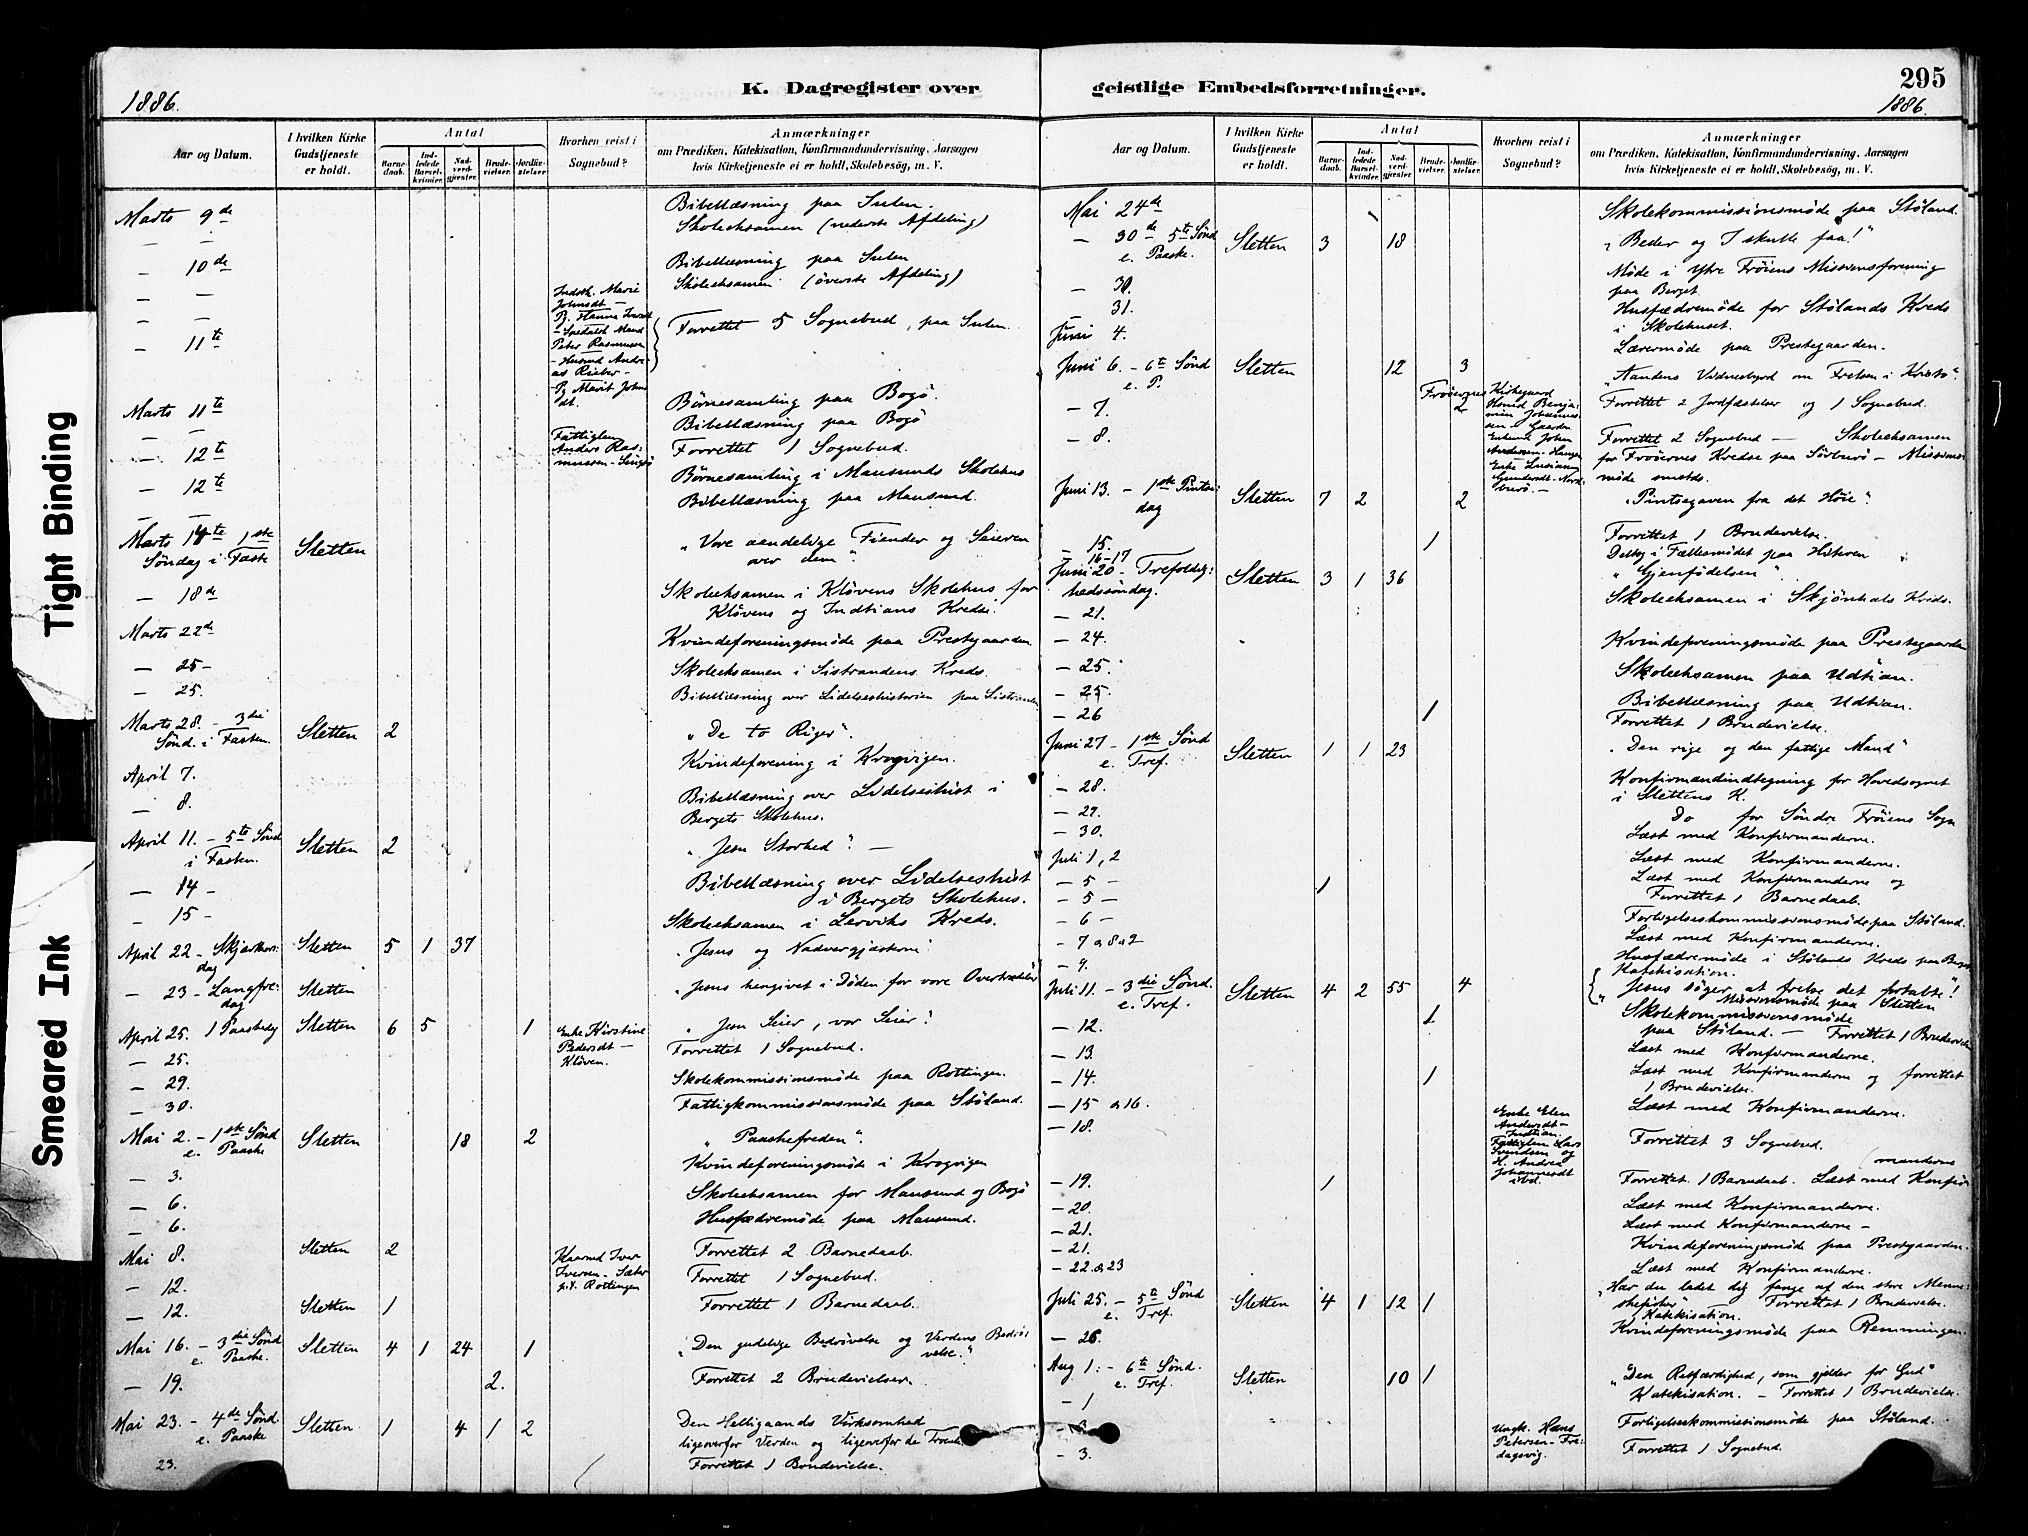 1886.
K. Dagregister over
geistlige Embedsforretninger.
295
1886.
Tight Binding
Smeared Ink
Aar og Datum.
I hvilken Kirke Gudstjeneste er holdt.
Antal
Barnedaab.
Indledede Barselkvinder.
Nadverdgjæster.
Brudevielser.
Jordfæstelser.
Hvorhen reist i Sognebud?
Anmærkninger
om Prædiken, Katekisation, Konfirmandundervisning, Aarsagen
hvis Kirketjeneste ei er holdt, Skolebesøg, m. V.
Marts 9de Bibellæsning paa Sulen.
— — Skoleeksamen (nederste Afdeling)
— 10de Bibellæsning paa Sulen
— — Skoleeksamen (överste Afdeling)
— 11te Forrettet 5 Sognebud, paa Sulen.
Marts 11te Börnesamling paa Bogö.
— — Bibellæsning paa Bogö
— 12te Fattiglem Anders Rasmussen Forrettet 1 Sognebud.
— 12te Börnesamling i Mausunds Skolehus
— — Bibellæsning paa Mausund.
Marts 14te 1ste Söndag i Faste Sletten „Vore aandelige Fiender og Seieren over dem“.
— 18de Skoleeksamen i Klövens Skolehus for
Klövens og Indtians Kredse.
Marts 22de Kvindeforeningsmöde paa Prestegaarden.
— 25 — Skoleeksamen i Sistrandens Kreds.
— 25. Bibellæsning over Lidelseshistorien paa Sistranden
Marts 28. — 3die Sönd. i Fasten. Sletten 2 „De to Riger“.
April 7. Kvindeforening i Krogvigen.
— 8. Bibellæsning over Lidelseshist i
Bergets Skolehus.
April 11. — 5te Sönd i Fasten. Sletten 2 „Jesu Storhed“. —
— 14 — Bibellæsning over Lidelseshist
i Bergets Skolehus.
— 15 — Skoleeksamen i Lerviks Kreds.
April 22 — Skjærthorsdag Sletten 5 1 37 „Jesus og Nadvergjæsterne“
— 23 — Langfredag Sletten „Jesus hengivet i Döden for vore Overtrædelser
April 25. 1 Paaskedag Sletten 6 5 1 „Jesu Seier, vor Seier“.
— 25. Enke Kirstine Pedersdt — Klöven. Forrettet 1 Sognebud.
— 29. Skolekommissionsmöde paa Rottingen.
— 30. Fattigkommissionsmöde paa Stöland.
Mai 2. — 1ste Sönd e. Paaske Sletten 18 2 „Paaskefreden“.
— 3. Kvindeforeningsmöde i Krogvigen
— 6. Skoleeksamen for Mausund og Bogö
— 6. Husfædremöde paa Mausund.
Mai 8. Sletten 2 Forrettet 2 Barnedaab.
— 12. Kaarmd Iver Iversen — Sæter p. t. Rottingen Forrettet 1 Sognebud.
— 12. Sletten 1 Forrettet 1 Barnedaab.
Mai 16. — 3die Sönd e. Paaske. Sletten 4 1 24 1 „Den gudelige Bedrövelse og Verdens Bedrövelse.“
— 19. 2. Forrettet 2 Brudevielser
Mai 23. — 4de Sönd. e. Paaske Sletten 1 4 1 2 Den Helligaands Virksomhed
ligeoverfor Verden og ligeoverfor de
23. Forrettet 1 Brudevielse.
Aar og Datum.
I hvilken Kirke Gudstjeneste er holdt.
Antal
Barnedaab.
Indledede Barselkvinder.
Nadverdgjæster.
Brudevielser.
Jordfæstelser.
Hvorhen reist i Sognebud?
Anmærkninger
om Prædiken, Katekisation, Konfirmandundervisning, Aarsagen
hvis Kirketjeneste ei er holdt, Skolebesøg, m. V.
Mai 24de Skolekommissionsmöde paa Stöland.
— 30de 5te Sönd e. Paaske. Sletten 3 18 „Beder og I skulle faa!“
— 30. Möde i Ytre Fröiens Missionsforening
paa Berget.
— 31. Husfædremöde for Stölands Kreds
i Skolehuset.
Juni 4. Lærermöde paa Prestegaarden.
Juni 6. — 6te Sönd e. P. Sletten 12 3 „Aandens Vidnesbyrd om Frelsen i Kristo“.
— 7. Fröernes 2 Forrettet 2 Jordfæstelser og 1 Sognebud.
— 8. Forrettet 2 Sognebud — Skoleeksamen
for Fröiernes Kredse paa Sörburö — Missionsmöde smsteds.
Juni 13. — 1ste Pintsedag Sletten 7 2 2 „Pintsegaven fra det Höie“
— 15. 1 Forrettet 1 Brudevielse.
16—17 Deltog i Fællesmödet paa Hitteren
Juni 20 — Trefoldighedssöndag. Sletten 3 1 36 „Gjenfödelsen“
— 21. Skoleeksamen i Skjönhals Kreds.
— 24. Kvindeforeningsmöde paa Prestegaarden
— 25. Skoleeksamen paa Udtian.
— 25 Bibellæsning paa Udtian.
— 26 1 Forrettet 1 Brudevielse.
Juni 27 — 1ste Sönd e. Tref. Sletten 1 1 23 „Den rige og den fattige Mand“
— 28. Konfirmandindtegning for Hovedsognet
i Slettens K.
— 29. Do for Söndre Fröiens Sogn
— 30. Læst med Konfirmanderne.
Juli 1, 2 Læst med Konfirmanderne.
— 5 — 1 Læst med Konfirmanderne og
Forrettet 1 Barnedaab.
— 5 — Forligelseskommissionsmöde paa Stöland.
— 6 — Læst med Konfirmanderne.
— 9. Husfædremöde i Stölands Kreds paa
Katekisation.
Juli 11. — 3die Sönd. e. Tref. Sletten 4 2 55 4 „Jesus söger at frelse det fortabte!“
Missionsmöde paa Sletten
— 12. 1 Skolekommissionsmöde
paa Stöland. — Forrettet 1 Brudevielse
— 13. Læst med Konfirmanderne.
— 14. 1 Læst med Konfirmanderne og forrettet
1 Brudevielse.
— 15 & 16. Læst med Konfirmanderne.
— 18. Enke Elen Andersdt — Indtian. Fattiglem Lars Svendsen og Forrettet 3 Sognebud.
— 19. 1 Forrettet 1 Barnedaab. Læst med Konfirmanderne
— 20. Læst med Konfirmanderne.
— 21. Læst med Konfirmanderne —
— 21. Kvindeforeningsmöde paa Prestgaarden.
— 22 & 23 Læst med Konfirmanderne.
Juli 25. — 5te Sönd e. Tref. Sletten 4 1 12 1 „Har du ladet dig fange af den store Menneskefisker“ Forrettet 1 Brudevielse.
Katekisation.
— 26. Kvindeforeningsmöde paa Remmingen.
Aug 1. — 6te Sönd. e. Tref. Sletten 10 1 „Den Retfærdighed, som gjelder for Gud“
— 1 Katekisation. — Forrettet 1 Brudevielse.
Forligelseskommissionsmöde paa Stöland.
— 3. Ungk. Hans Petersen — Fredagsvig. Forrettet 1 Sognebud.